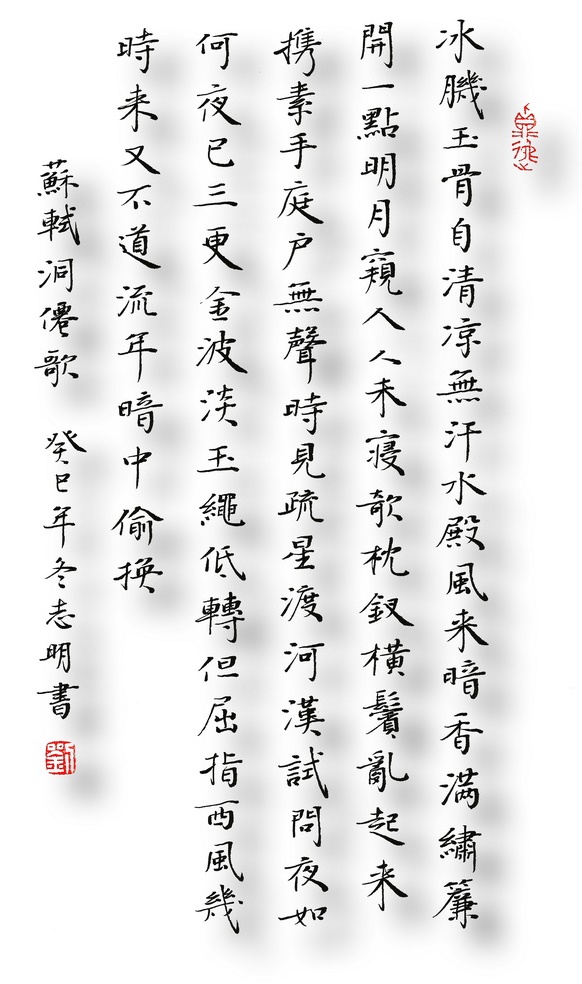 冰𦠄玉骨自清凉無汗水殿風来暗香滿繡簾
開一點明月窺人人未寢欹枕釵橫鬢亂起来
攜素手庭户無聲時見疏星渡河漢試問夜如
何夜已三更金波淡玉繩低轉但屈指西風幾
時来又不道流年暗中偷换
蘇軾洞僊歌 癸巳年冬志明書
劉